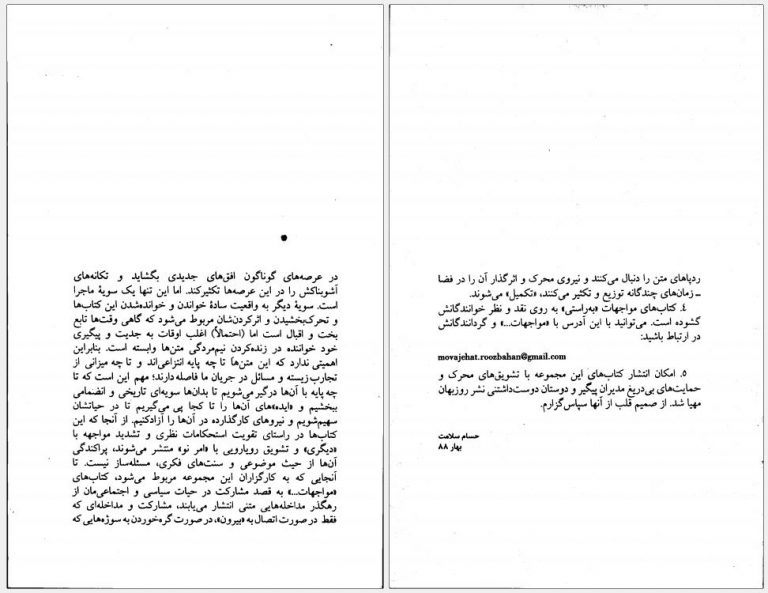 در عرصه‌های گوناگون افق‌های جدیدی بگشاید و تکانه‌های
آشوبناکش را در این عرصه‌ها تکثیرکند. اما این تنها یک سویهٔ ماجرا
است. سویهٔ دیگر به واقعیت سادهٔ خواندن و خوانده‌شدن این کتاب‌ها
و تحرک‌بخشیدن و اثرکردن‌شان مربوط می‌شود که گاهی وقت‌ها تابع
بخت و اقبال است اما (احتمالاً) اغلب اوقات به جدیت و پیگیری
خود خواننده در زنده‌کردن نیم‌مردگی متن‌ها وابسته است. بنابراین
اهمیتی ندارد که این متن‌ها تا چه پایه انتزاعی‌اند و تا چه میزانی از
تجارب زیسته و مسائل در جریان ما فاصله دارند؛ مهم این است که تا
چه پایه با آن‌ها درگیر می‌شویم تا بدان‌ها سویه‌ای تاریخی و انضمامی
ببخشیم و «ایده»‌های آن‌ها را تا کجا پی می‌گیریم تا در حیاتشان
سهیم‌شویم و نیروهای کارگذارده در آن‌ها را آزادکنیم. از آنجا که این
کتاب‌ها در راستای تقویت استحکامات نظری و تشدید مواجهه با
«دیگری» و تشویق رویارویی با «امر نو» منتشر می‌شوند، پراکندگی
آن‌ها از حیث موضوعی و سنت‌های فکری، مسئله‌ساز نیست. تا
آنجایی که به کارگزاران این مجموعه مربوط می‌شود، کتاب‌های
«مواجهات...» به قصد مشارکت در حیات سیاسی و اجتماعی‌مان از
رهگذر مداخله‌هایی متنی انتشار می‌یابند، مشارکت و مداخله‌ای که
فقط در صورت اتصال به «بیرون»، در صورت گره‌خوردن به سوژه‌هایی که
ردپاهای متن را دنبال می‌کنند و نیروی محرک و اثرگذار آن را در فضا
ـ زمان‌های چندگانه توزیع و تکثیر می‌کنند، «تکمیل» می‌شوند.
۴. کتاب‌های مواجهات «به‌راستی» به روی نقد و نظر خوانندگانش
گشوده است. می‌توانید با این آدرس با «مواجهات...» و گردانندگانش
در ارتباط باشید:
movajehat.roozbahan@gmail.com
۵. امکان انتشار کتاب‌های این مجموعه با تشویق‌های محرک و
حمایت‌های بی‌دریغ مدیران پیگیر و دوستان دوست‌داشتنی نشر روزبهان
مهیا شد. از صمیم قلب از آنها سپاس‌گزارم.
حسام سلامت
بهار ۸۸